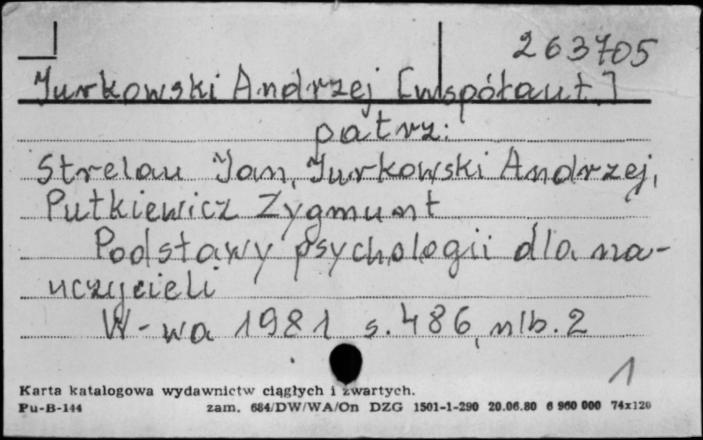 263705
Jurkowski Andrzej [współaut.]
patrz:
Strelau Jan, Jurkowski Andrzej,
Putkiewicz Zygmunt
Podstawy psychologii dla na-
uczycieli
W-wa 1981 s. 486, nlb. 2
1
Karta katalogowa wydawnictw ciągłych i zwartych.
Pu-B-144 zam. 684/DW/WA/On DZG 1501-1-290 20.06.80 6 960 000 74x120